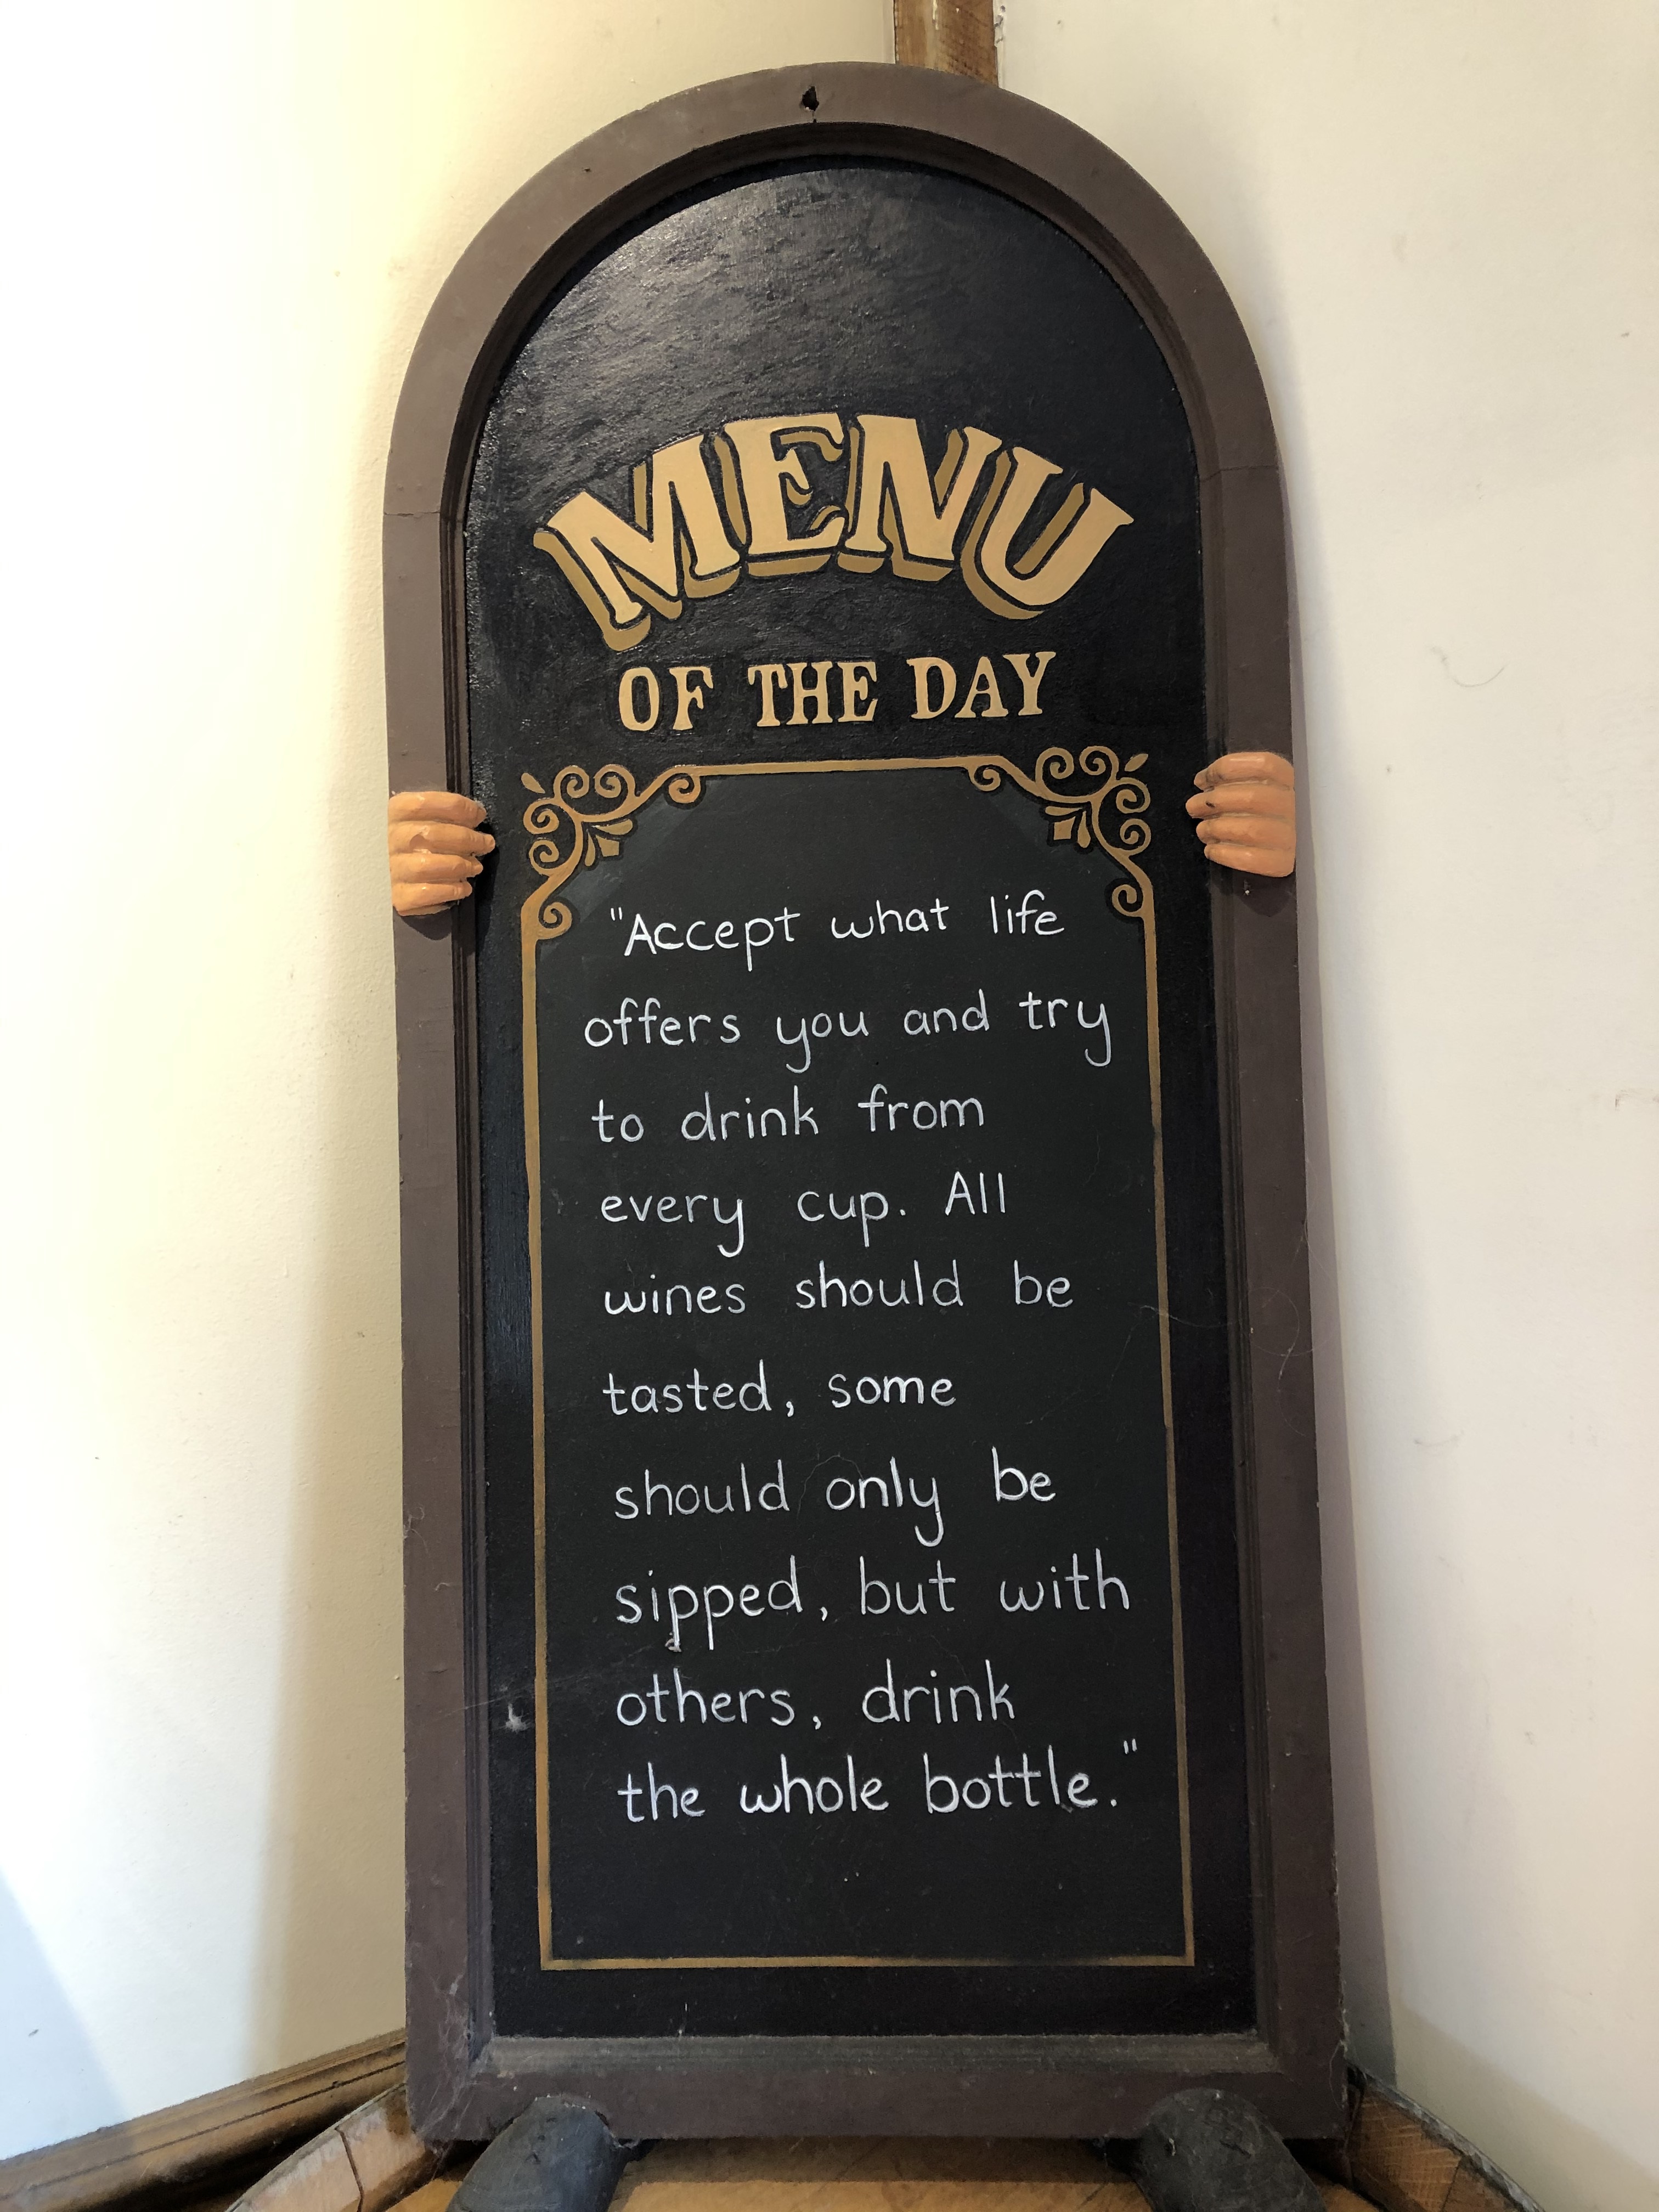 MENU
OF THE DAY
"Accept what life
offers you and try
to drink from
every cup. All
wines should be
tasted, some
should only be
sipped, but with
others, drink
the whole bottle."